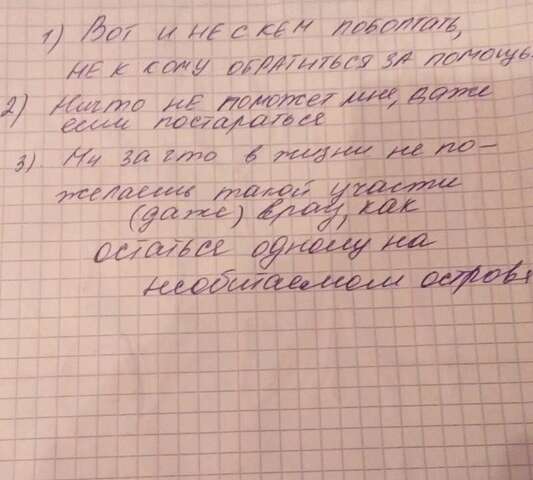 1) Вот и не с кем поболтать,
не к кому обратиться за помощь
2) Ничто не поможет мне, даже
если постараться
3). Ни за что в жизни не по-
желаешь такой участи
(даже) врагу, как
остаться одному на
необитаемом острове